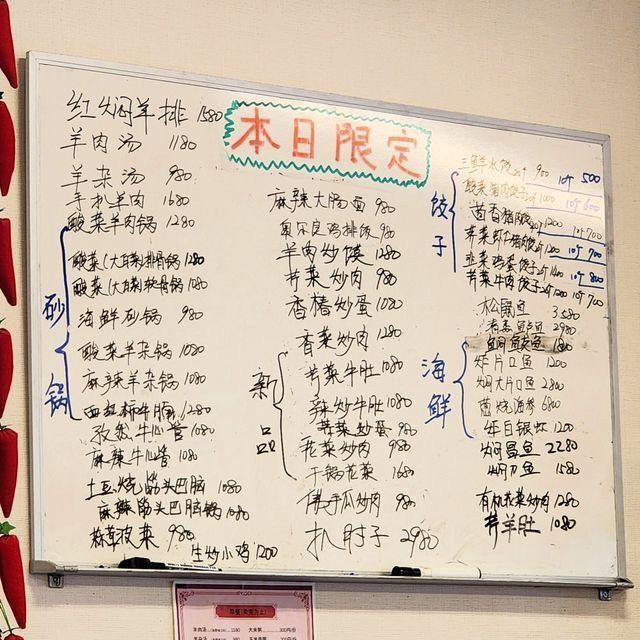 本日限定
红焖羊排 1580
羊肉汤 1180
羊杂汤 980
手扒羊肉 1680
酸菜羊肉锅 1280
砂锅
酸菜(大骨)排骨锅 1280
酸菜(大骨)软骨锅 1080
海鲜砂锅 980
酸菜羊杂锅 1080
麻辣羊杂锅 1080
西红柿牛腩 1280
孜然牛心管 1080
麻辣牛心管 1080
土豆烧筋头巴脑 1080
麻辣筋头巴脑锅 1080
菠菜 980
生炒小鸡 1200
麻辣大肠蛋 980
奥尔良鸡排饭 980
羊肉炒馍 1280
芹菜炒肉 980
香椿炒蛋 1080
香菜炒肉 1280
新品
芹菜牛肚 1080
辣炒牛肚 1080
韭菜炒蛋 980
花菜炒肉 980
干锅花菜 1680
佛手瓜炒肉 980
扒肘子 2980
饺子
三鲜水饺 20个 900 10个 500
酸菜猪肉饺子 20个 1000 10个 600
茴香猪肉 20个 1200 10个 700
1200 10个 700
韭菜鸡蛋饺子 20个 1600 10个 800
芹菜牛肉饺子 20个 1200 10个 700
松鼠鱼 3580
清蒸 2980
海鲜
鱼 1800
炸片口鱼 1200
焖大片口鱼 2800
烧海参 6800
1200
焖 鱼 2280
焖刀鱼 1580
有机花菜炒肉 1280
羊肚 1080